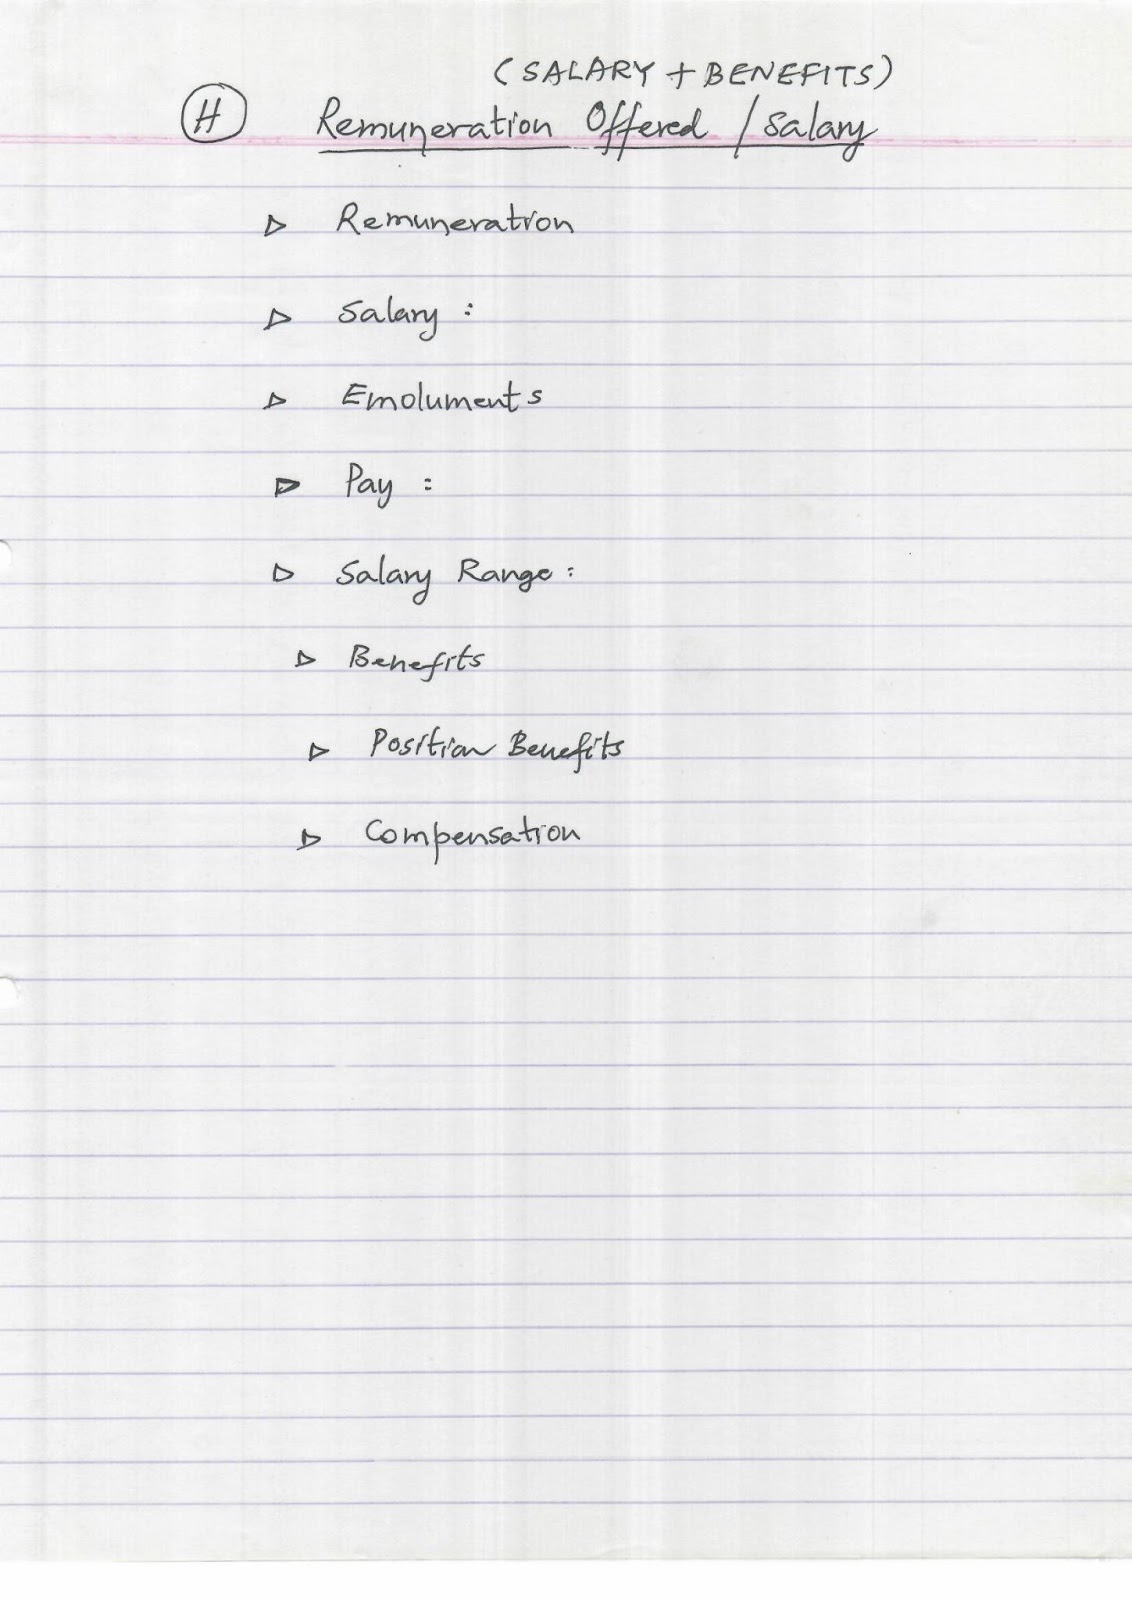 (SALARY + BENEFITS)
H Remuneration Offered / Salary
Remuneration
Salary :
Emoluments
Pay :
Salary Range :
Benefits
Position Benefits
Compensation